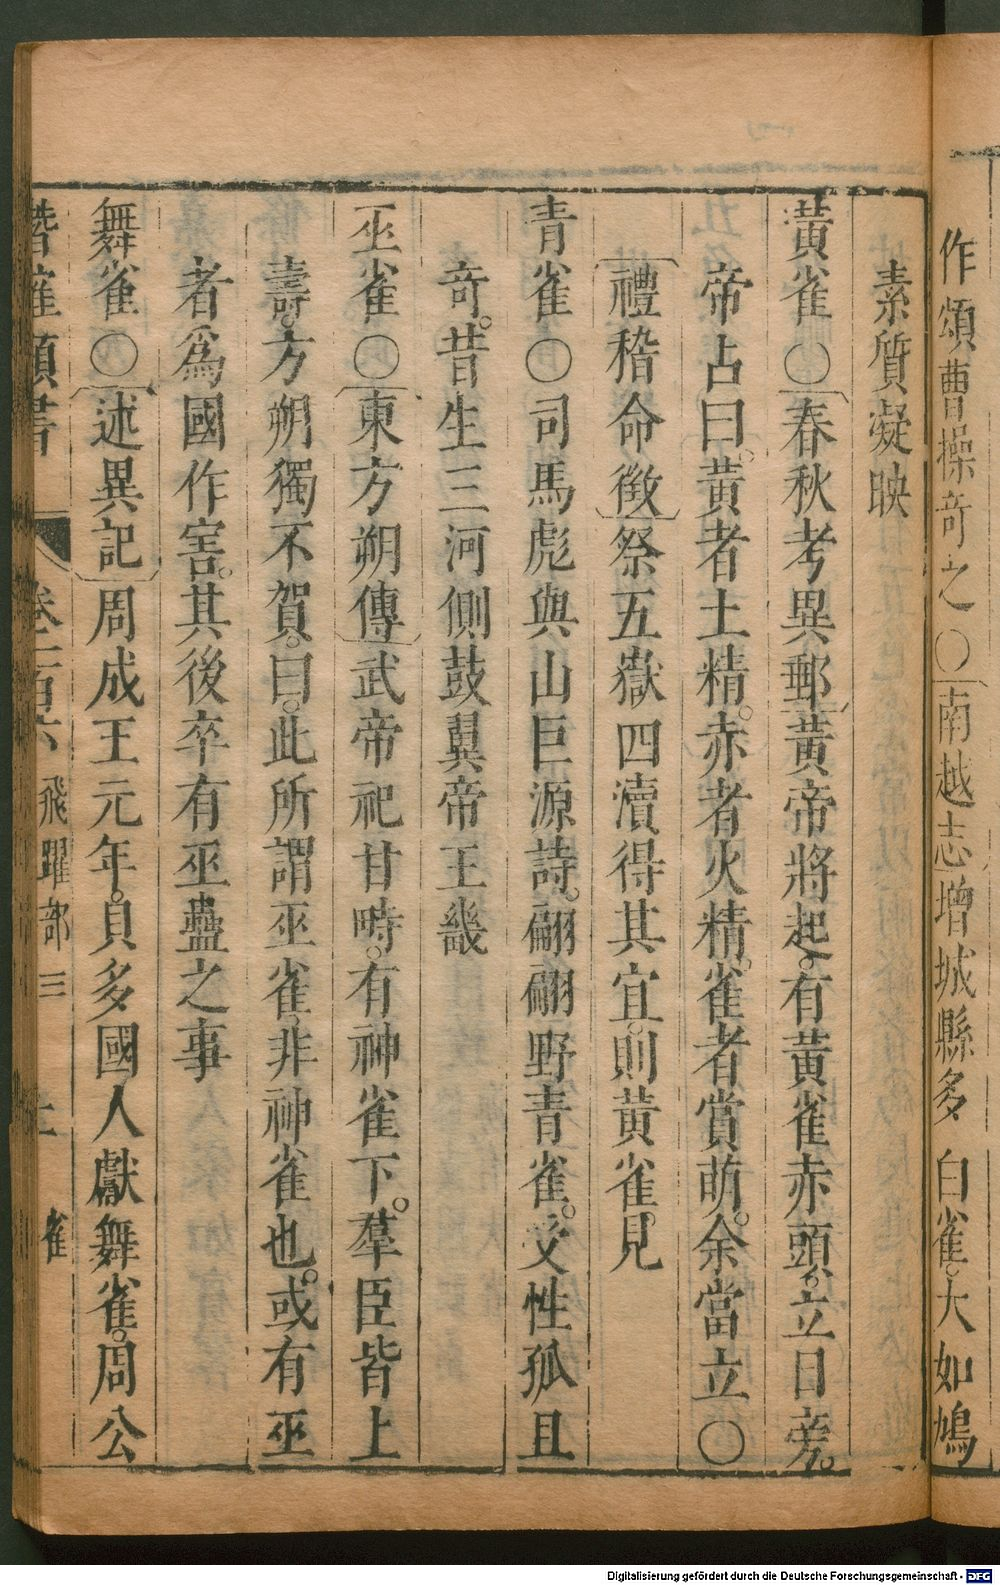 作頌曹操奇之〇南越志增城縣多白雀。大如鳩
素質凝映
黃雀〇春秋考異郵黃帝將起。有黃雀赤頭。立日旁。
帝占曰。黃者土精。赤者火精。雀者賞萌。余當立〇
禮稽命徵祭五嶽四瀆得其宜。則黃雀。見
青雀〇司馬彪與山巨源詩。翩翩野青雀。受性孤且
奇。昔生三河側鼓翼帝王畿
巫雀〇東方朔傳武帝祀甘畤。有神雀下。羣臣皆上
壽。方朔獨不賀。曰。此所謂巫雀。非神雀也。或有巫
者爲國作害。其後卒有巫蠱之事
舞雀〇述異記周成王元年。貝多國人獻舞雀。周公
潛確類書 卷一百六 飛躍部三 上 雀
Digitalisierung gefördert durch die Deutsche Forschungsgemeinschaft - DFG